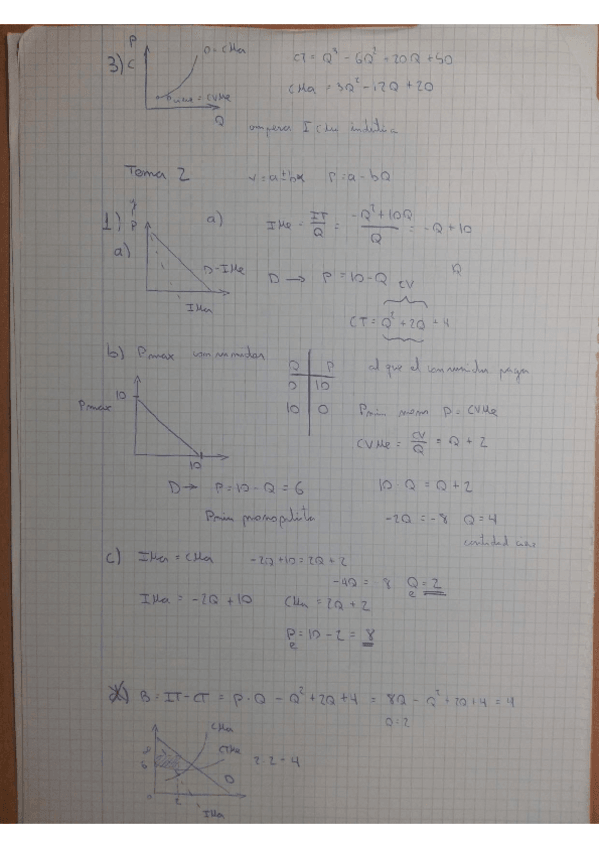 P
3) C
O = CMa
CT = Q³ - 6Q² + 20Q + 50
CMa = 3Q² - 12Q + 20
Pmin = CVMe
Q
empresa I
Tema 2
Y = a ± bx P = a - bQ
1)
Y
P
a)
a)
IMe = IT/Q = (-Q² + 10Q)/Q = -Q + 10
D - IMe
IMa
Q
D → P = 10 - Q
CV
CT = Q² + 2Q + 4
b) Pmax consumidor
Q P
0 10
10 0
al que el consumidor paga
Pmax
10
10
Pmin mono P = CVMe
CVMe = CV/Q = Q + 2
D → P = 10 - Q = 6
10 - Q = Q + 2
Pmin monopolista
-2Q = -8 Q = 4
cantidad
c) IMa = CMa -2Q + 10 = 2Q + 2
-4Q = 8 Q = 2
e
IMa = -2Q + 10 CMa = 2Q + 2
P = 10 - 2 = 8
e
B = IT - CT = P·Q - Q² + 2Q + 4 = 8Q - Q² + 2Q + 4 = 4
Q=2
CMa
CTMe
8
6
2·2=4
D
0
2
IMa